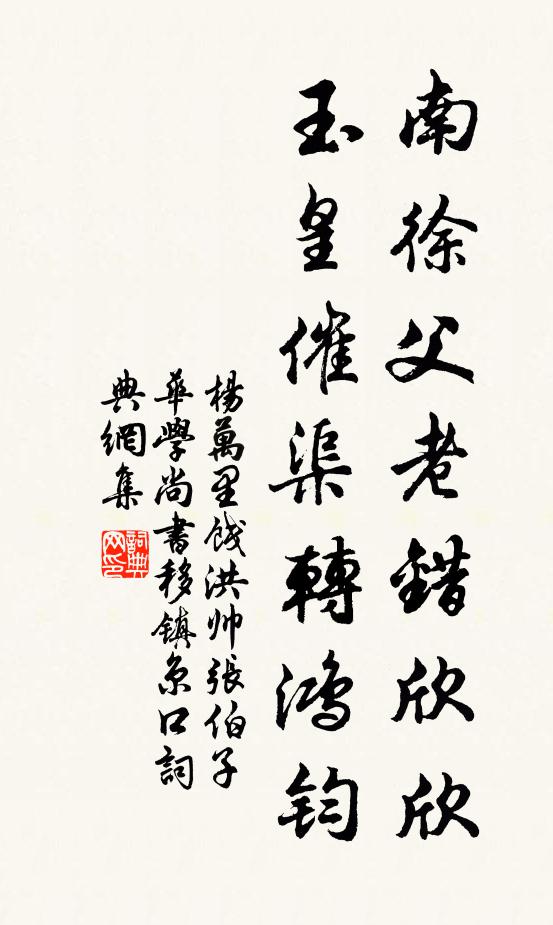 南徐父老錯欣欣
玉皇催渠轉鴻鈞
楊萬里餞洪帅張伯子
華學尚書移鎮京口詞
典網集
詞典网印